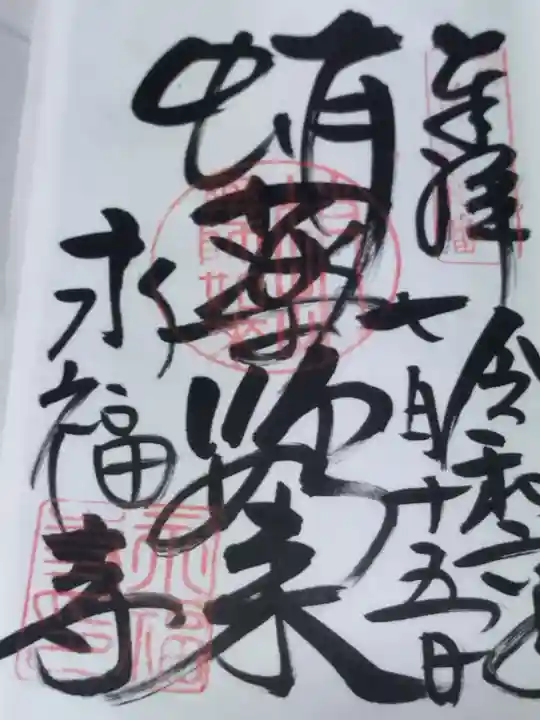 奉拝
令和六年
七月十五日
蛸薬師如来
永福寺